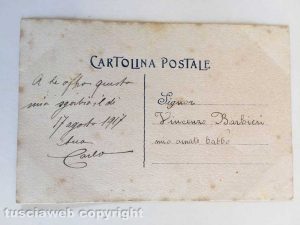 CARTOLINA POSTALE
A te offro questo
mio
il dì
17 agosto 1917
tuo
Carlo
Signor
Vincenzo Barbieri
mio amato babbo
tusciaweb copyright